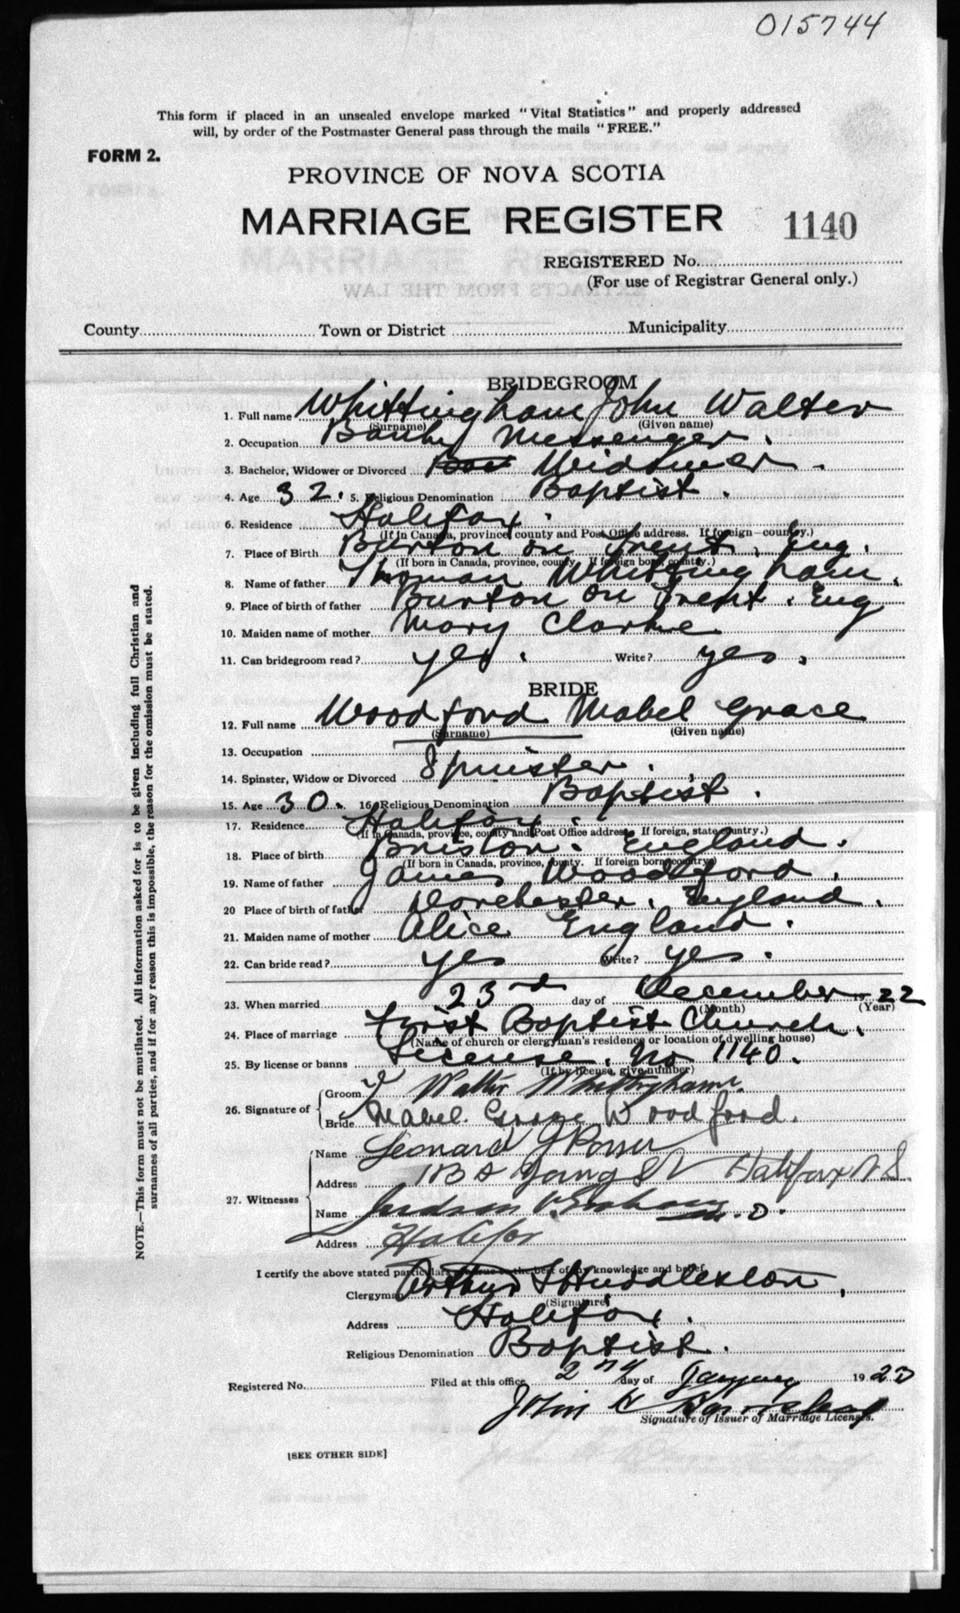 015744
This form if placed in an unsealed envelope marked "Vital Statistics" and properly addressed
will, by order of the Postmaster General pass through the mails "FREE."
FORM 2.
PROVINCE OF NOVA SCOTIA
MARRIAGE REGISTER 1140
REGISTERED No.
(For use of Registrar General only.)
County Town or District Municipality
BRIDEGROOM
1. Full name Whittingham John Walter
(Surname) (Given name)
2. Occupation Messenger.
3. Bachelor, Widower or Divorced Widower.
4. Age 32. 5. Religious Denomination Baptist.
6. Residence Halifax.
(If in Canada, province, county and Post Office address. If foreign—country.)
7. Place of Birth Burton on Trent, Eng.
(If born in Canada, province, county. If foreign born, country.)
8. Name of father Whittingham.
9. Place of birth of father Burton on Trent. Eng
10. Maiden name of mother Mary Clarke
11. Can bridegroom read? yes. Write? yes.
BRIDE
12. Full name Woodford Mabel Grace
(Surname) (Given name)
13. Occupation
14. Spinster, Widow or Divorced Spinster.
15. Age 30. 16. Religious Denomination Baptist.
17. Residence Halifax.
(If in Canada, province, county and Post Office address. If foreign, state country.)
18. Place of birth England.
(If born in Canada, province, county. If foreign born, country)
19. Name of father James Woodford.
20 Place of birth of father Dorchester. England.
21. Maiden name of mother Alice England.
22. Can bride read? yes Write? yes.
23. When married 23rd day of December 1922
(Month) (Year)
24. Place of marriage First Baptist Church.
(Name of church or clergyman's residence or location of dwelling house)
25. By license or banns License. No 1140.
(If by license, give number)
26. Signature of Groom J Walter Whittingham.
Bride Mabel Grace Woodford.
27. Witnesses Name Leonard J
Address Young St Halifax N S
Name Judson V. Graham M.D.
Address Halifax
I certify the above stated particulars are true to the best of my knowledge and belief.
Clergyman Arthur S Huddleston,
(Signature)
Address Halifax.
Religious Denomination Baptist.
Registered No. Filed at this office 2nd day of January 1923
John
Signature of Issuer of Marriage Licenses.
[SEE OTHER SIDE]
NOTE.—This form must not be mutilated. All information asked for is to be given including full Christian and
surnames of all parties, and if for any reason this is impossible, the reason for the omission must be stated.